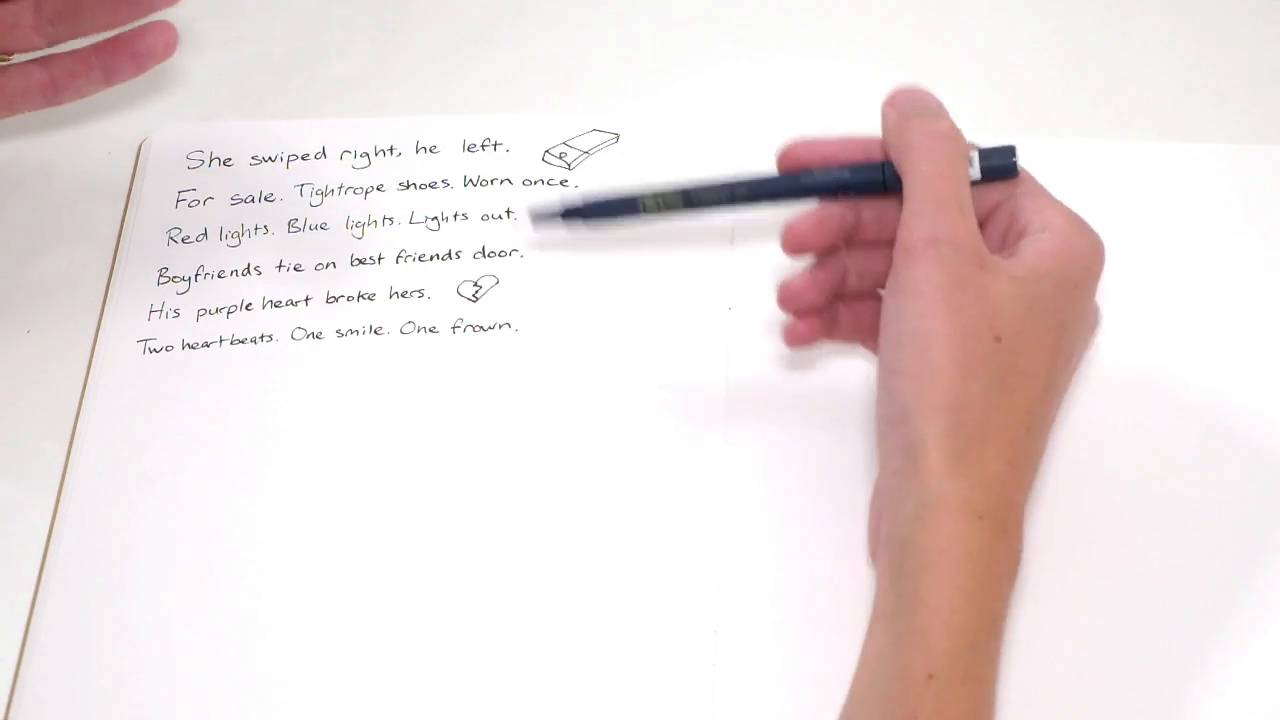 She swiped right, he left.
For sale. Tightrope shoes. Worn once.
Red lights. Blue lights. Lights out.
Boyfriends tie on best friends door.
His purple heart broke hers.
Two heartbeats. One smile. One frown.